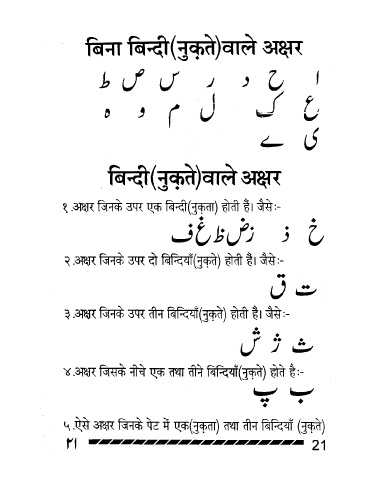 बिना बिन्दी(नुक़ते)वाले अक्षर
ا ح د ر س ص ط
ع ک ل م و ہ
ی ے
बिन्दी(नुक़ते)वाले अक्षर
१.अक्षर जिनके उपर एक बिन्दी(नुकता) होती हैं। जैसेः-
خ ذ ز ض ظ غ ف
२.अक्षर जिनके उपर दो बिन्दियाँ(नुकते) होती हैं। जैसेः-
ت ق
३.अक्षर जिनके उपर तीन बिन्दियाँ(नुकते) होती है। जैसेः-
ث ژ ش
४.अक्षर जिसके नीचे एक तथा तीने बिन्दियाँ(नुकते) होते हैः-
ب پ
५.ऐसे अक्षर जिनके पेट में एक(नुकता) तथा तीन बिन्दियाँ (नुकते)
٢١ 21